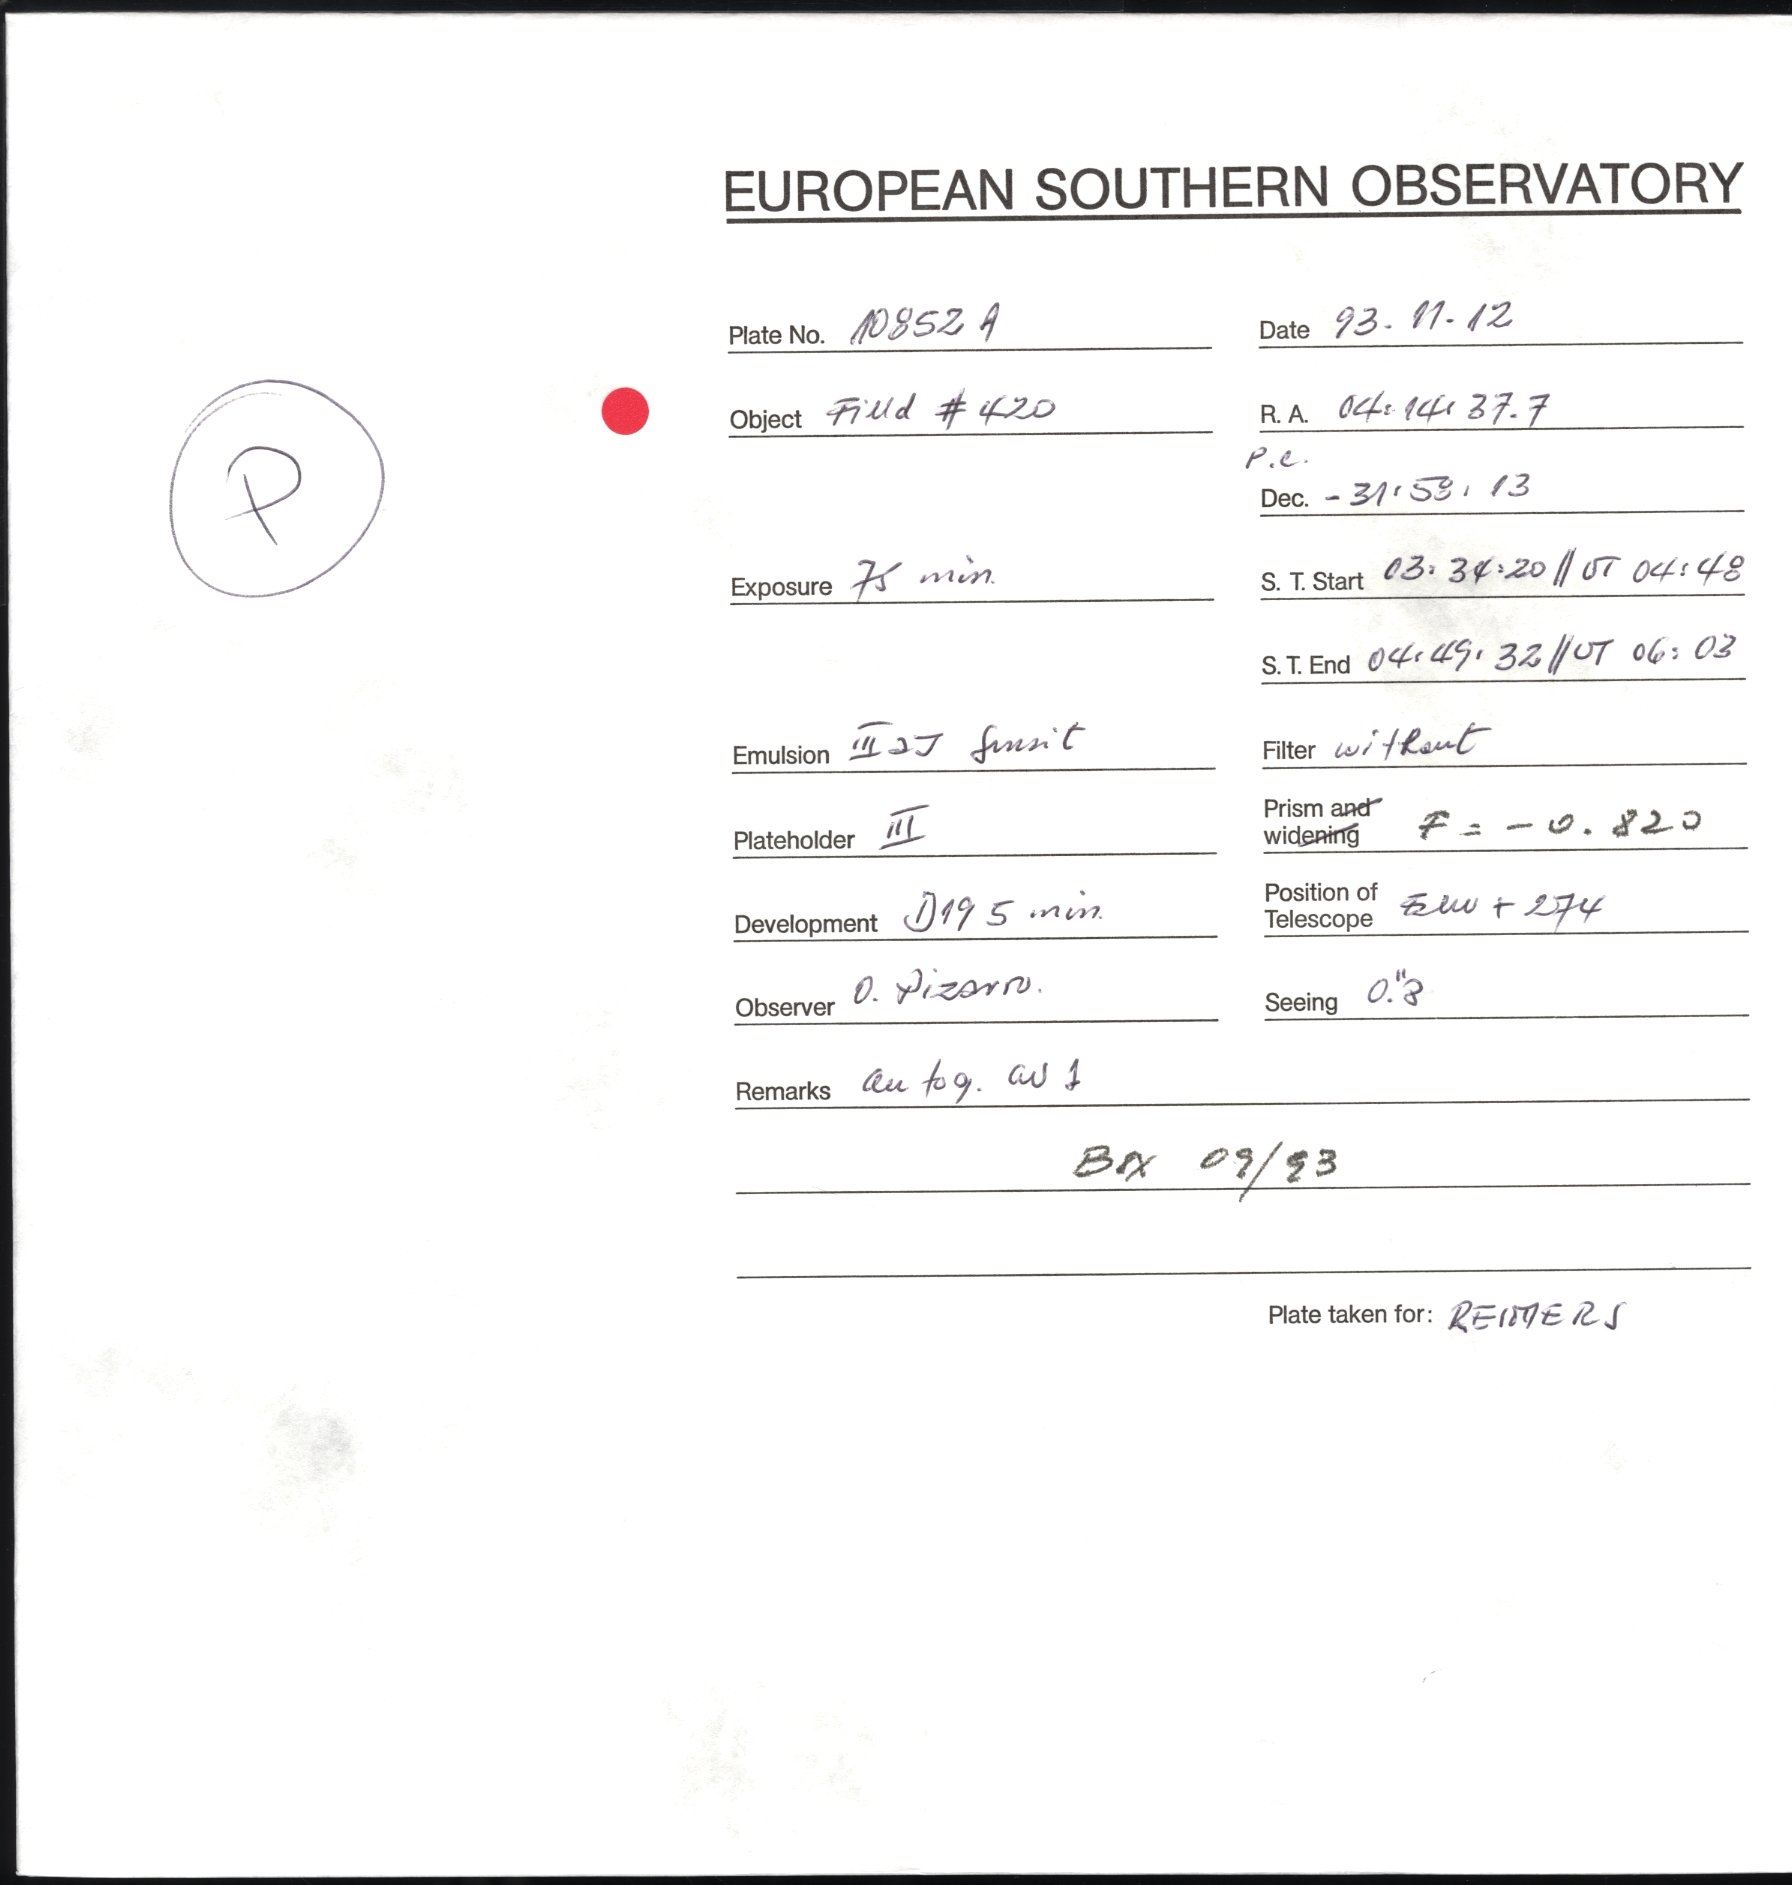 EUROPEAN SOUTHERN OBSERVATORY
Plate No. 10852 A
Date 93.11.12
P
Object Field # 420
R. A. 04:14:37.7
P.c.
Dec. -31:53:13
Exposure 75 min.
S. T. Start 03:34:20 // UT 04:48
S. T. End 04:49:32 // UT 06:03
Emulsion III aJ sensit
Filter without
Plateholder III
Prism and widening F = -0.820
Development D19 5 min.
Position of Telescope + 274
Observer O. Pizarro.
Seeing 0."8
Remarks autog.
Box 09/93
Plate taken for: REIMERS